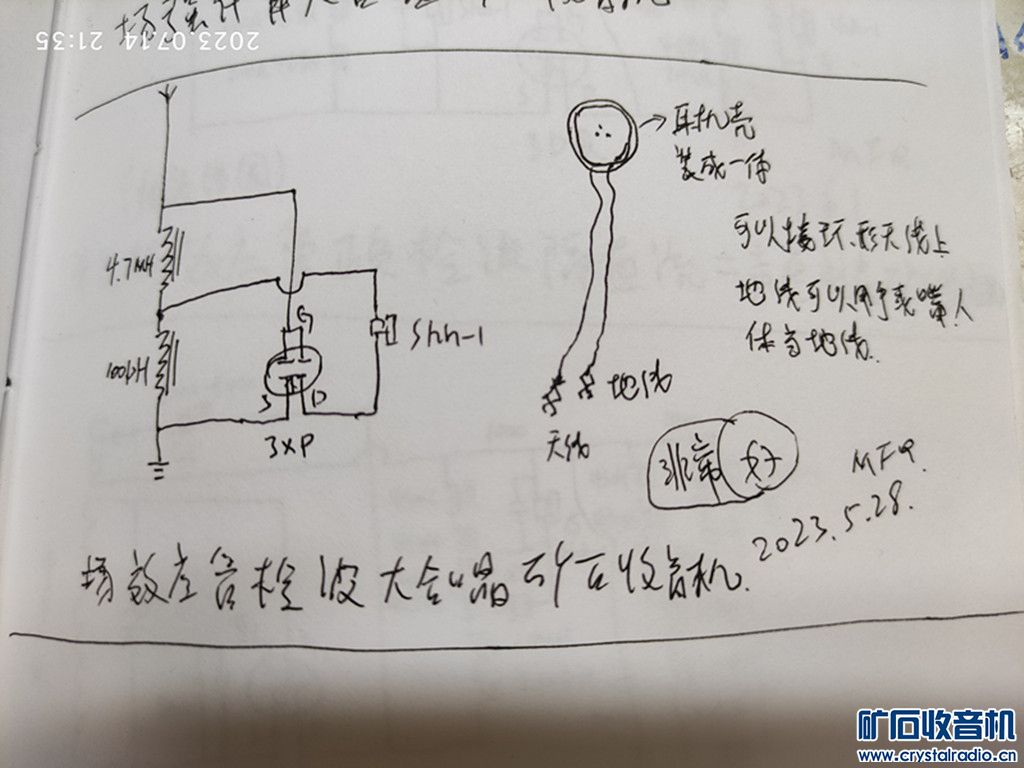 2023.07.14 21:35
4.7MH
100μH
G
S
D
3XP
Shh-1
耳机壳
装成一体
可以接环形天线上
地线可以用手或嘴人
体当地线.
地线
天线
非常好
MFQ.
2023.5.28.
场效应管检波大合唱矿石收音机.
矿石收音机
www.crystalradio.cn